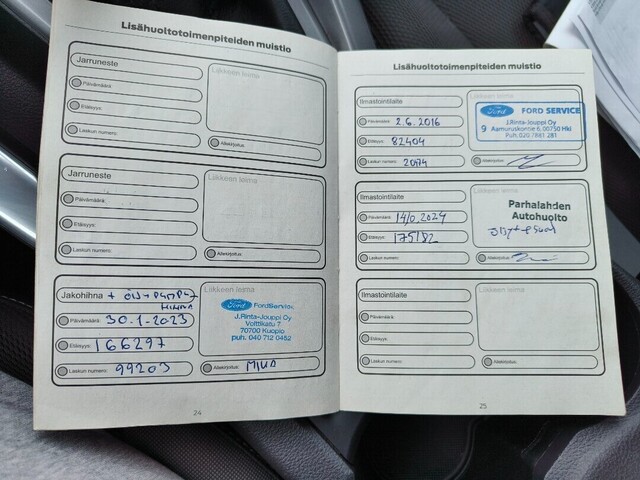 Lisähuoltotoimenpiteiden muistio
Jarruneste
Liikkeen leima
Päivämäärä:
Etäisyys:
Laskun numero:
Allekirjoitus:
Jarruneste
Liikkeen leima
Päivämäärä:
Etäisyys:
Laskun numero:
Allekirjoitus:
Jakohihna + ÖN + PUMPU
HIHNA
Liikkeen leima
Päivämäärä: 30.1-2023
Etäisyys: 166297
Laskun numero: 99203
Ford FordService
J.Rinta-Jouppi Oy
Volttikatu 7
70700 Kuopio
puh. 040 712 0452
Allekirjoitus:
24
Lisähuoltotoimenpiteiden muistio
Ilmastointilaite
Liikkeen leima
Päivämäärä: 2.6.2016
Etäisyys: 82404
Laskun numero: 2074
Ford FORD SERVICE
J.Rinta-Jouppi Oy
9 Aamuruskontie 6, 00750 Hki
Puh. 020 7881 281
Allekirjoitus:
Ilmastointilaite
Liikkeen leima
Päivämäärä: 14/6.2024
Etäisyys: 175182
Laskun numero:
Parhalahden
Autohuolto
Allekirjoitus:
Ilmastointilaite
Liikkeen leima
Päivämäärä:
Etäisyys:
Laskun numero:
Allekirjoitus:
25